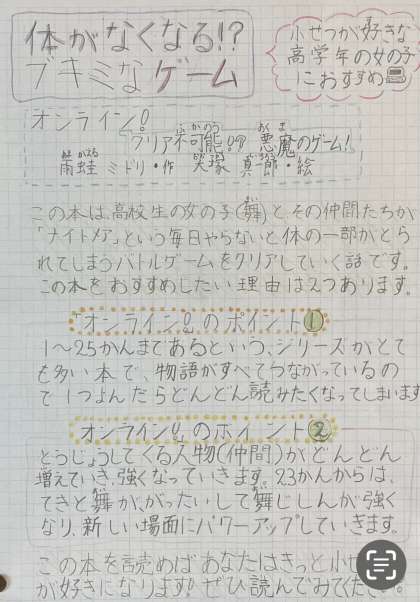 体がなくなる!?
ブキミなゲーム
小せつが好きな
高学年の女の子
におすすめ
オンライン!
クリア不可能!? 悪魔のゲーム!
かのう あくま
雨蛙 ミドリ・作 笑
・絵
この本は、高校生の女の子(舞)とその仲間たちが
「ナイトメア」という毎日やらないと体の一部がとら
れてしまうバトルゲームをクリアしていく話です。
この本をおすすめしたい理由は2つあります。
「オンライン!」のポイント①
1〜25かんまであるという、シリーズがとて
も多い本で、物語がすべてつながっているの
で1つよんだらどんどん読みたくなってしまいます
オンライン!のポイント②
とうじょうしてくる人物(仲間)がどんどん
増えていき、強くなっていきます。23かんからは、
てきと舞が、がったいして舞じしんが強く
なり、新しい場面にパワーアップしていきます。
この本を読めばあなたはきっと小せ
が好きになります!ぜひ読んでみてください。